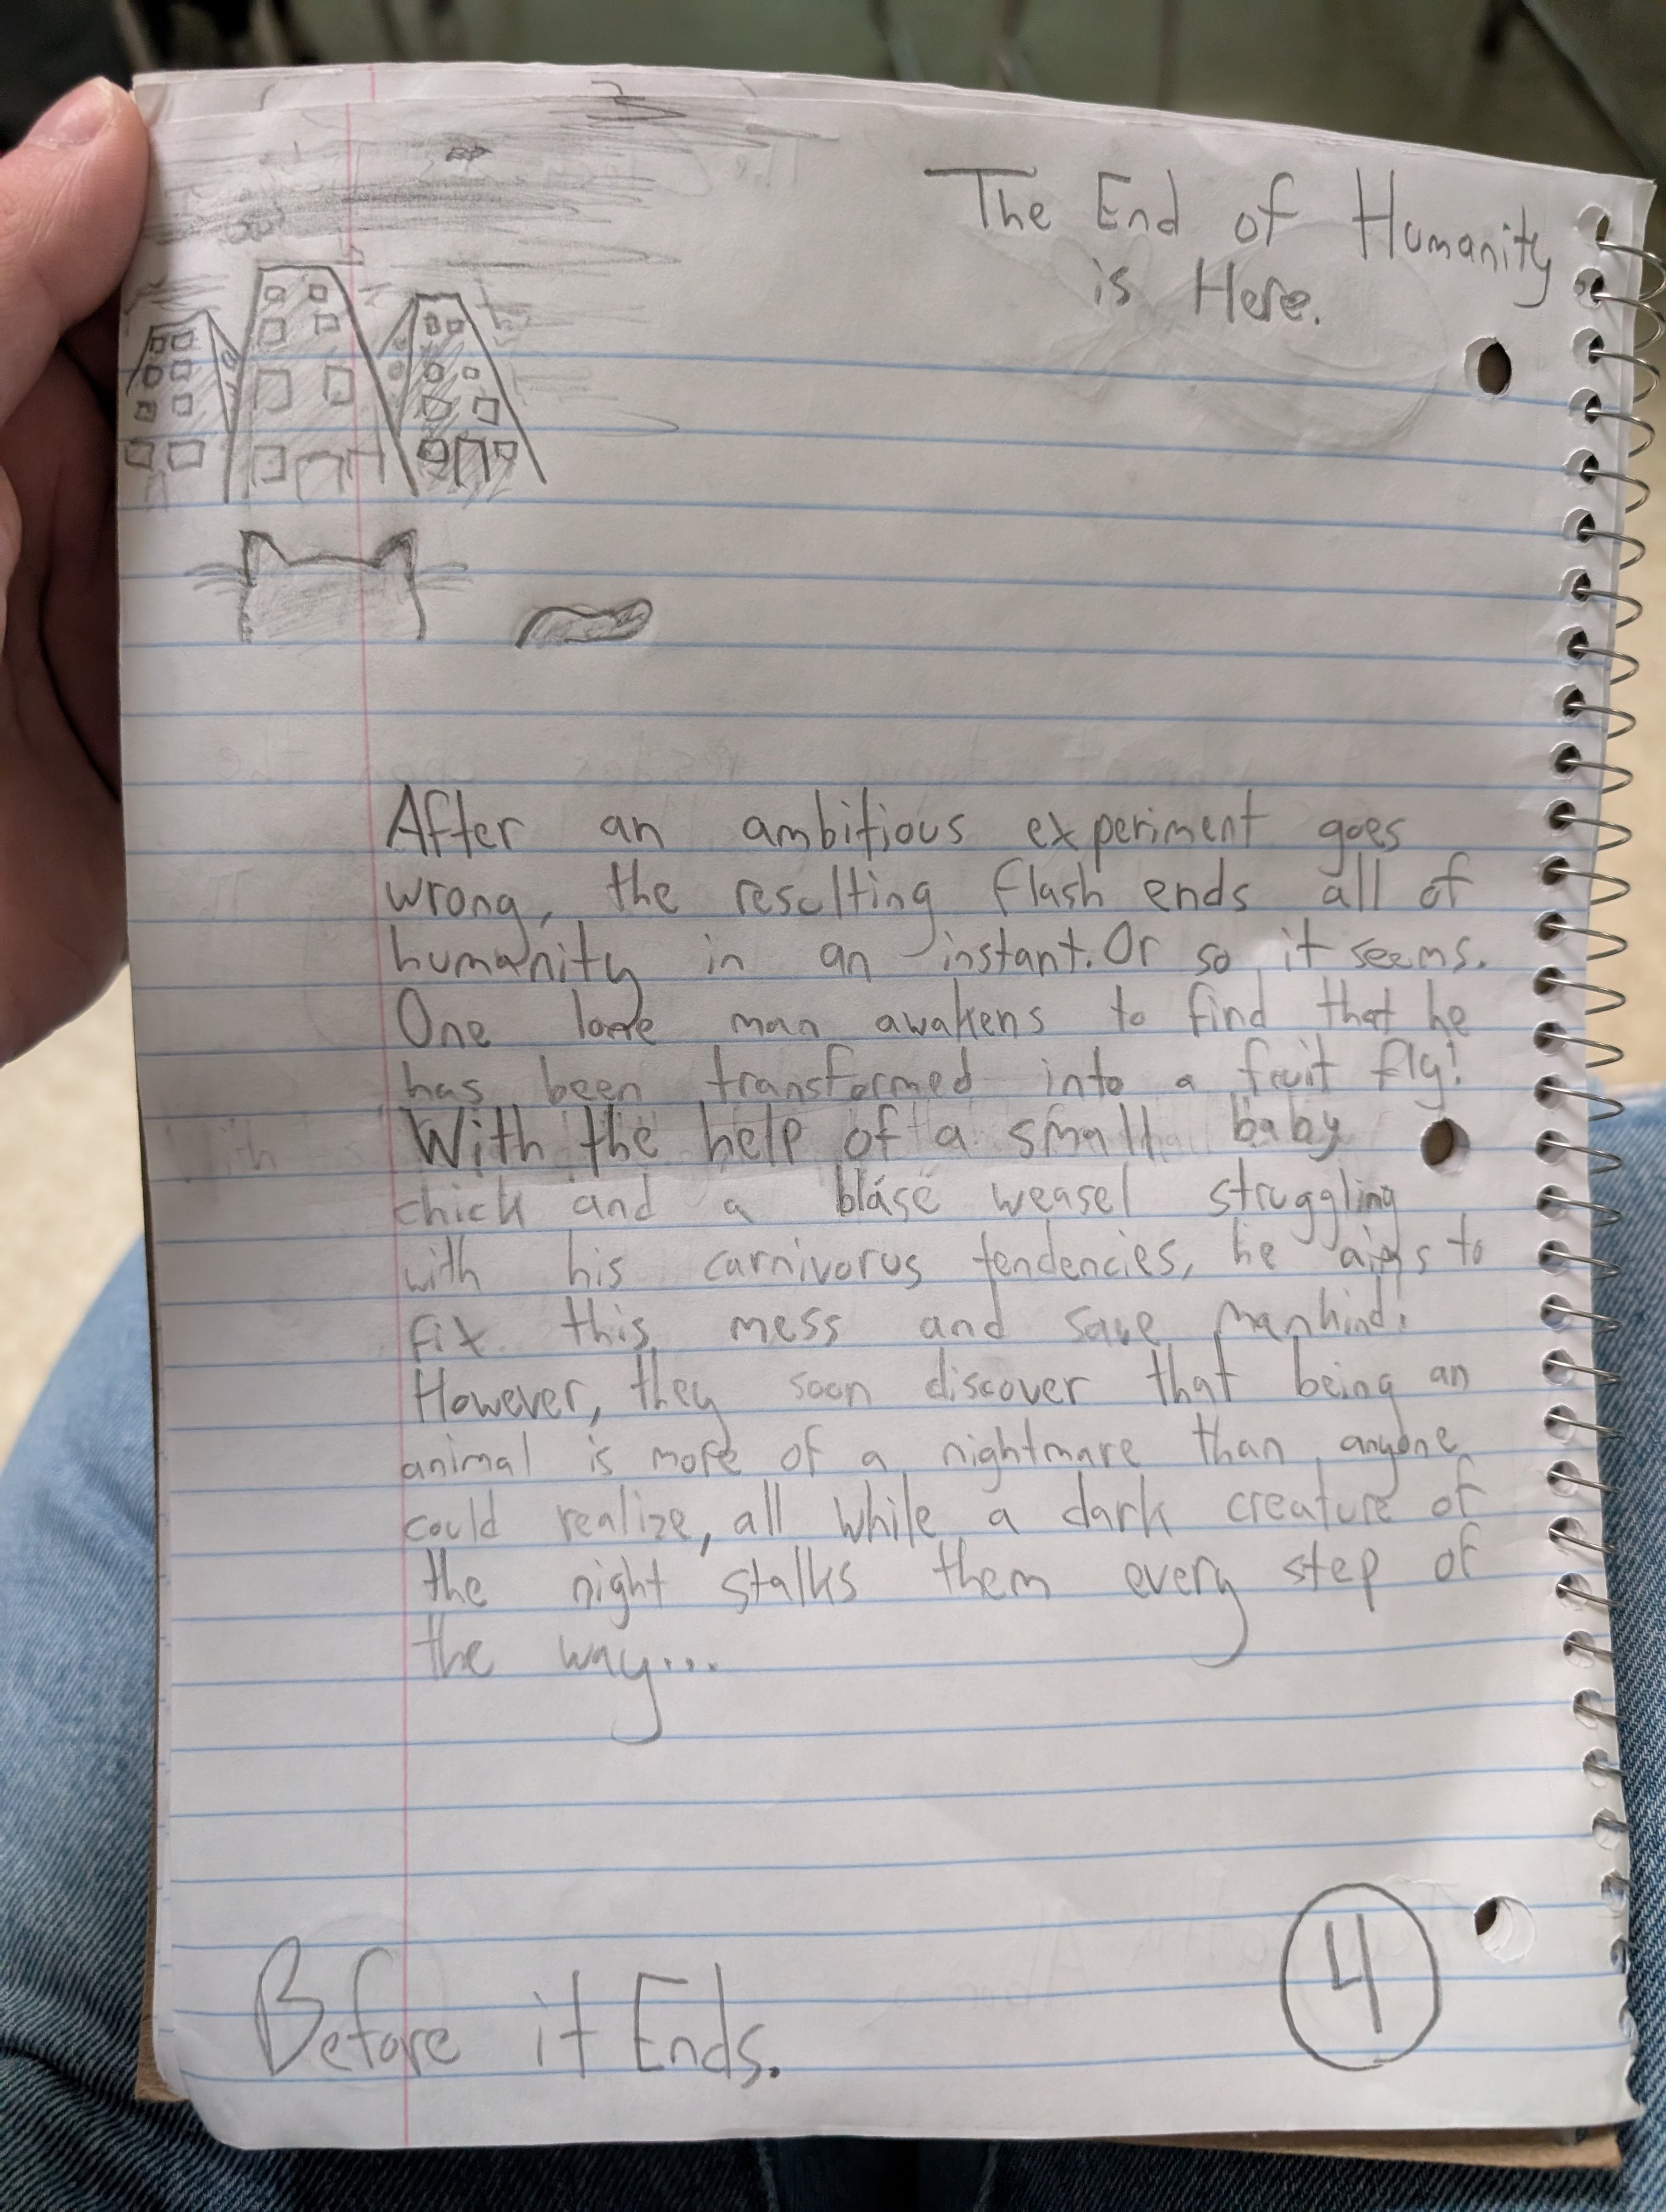 The End of Humanity
is Here.
After an ambitious experiment goes
wrong, the resulting flash ends all of
humanity in an instant. Or so it seems.
One lone man awakens to find that he
has been transformed into a fruit fly!
With the help of a small baby
chick and a blásé weasel struggling
with his carnivorus tendencies, he aims to
fix this mess and save mankind.
However, they soon discover that being an
animal is more of a nightmare than anyone
could realize, all while a dark creature of
the night stalks them every step of
the way...
Before it Ends.
4